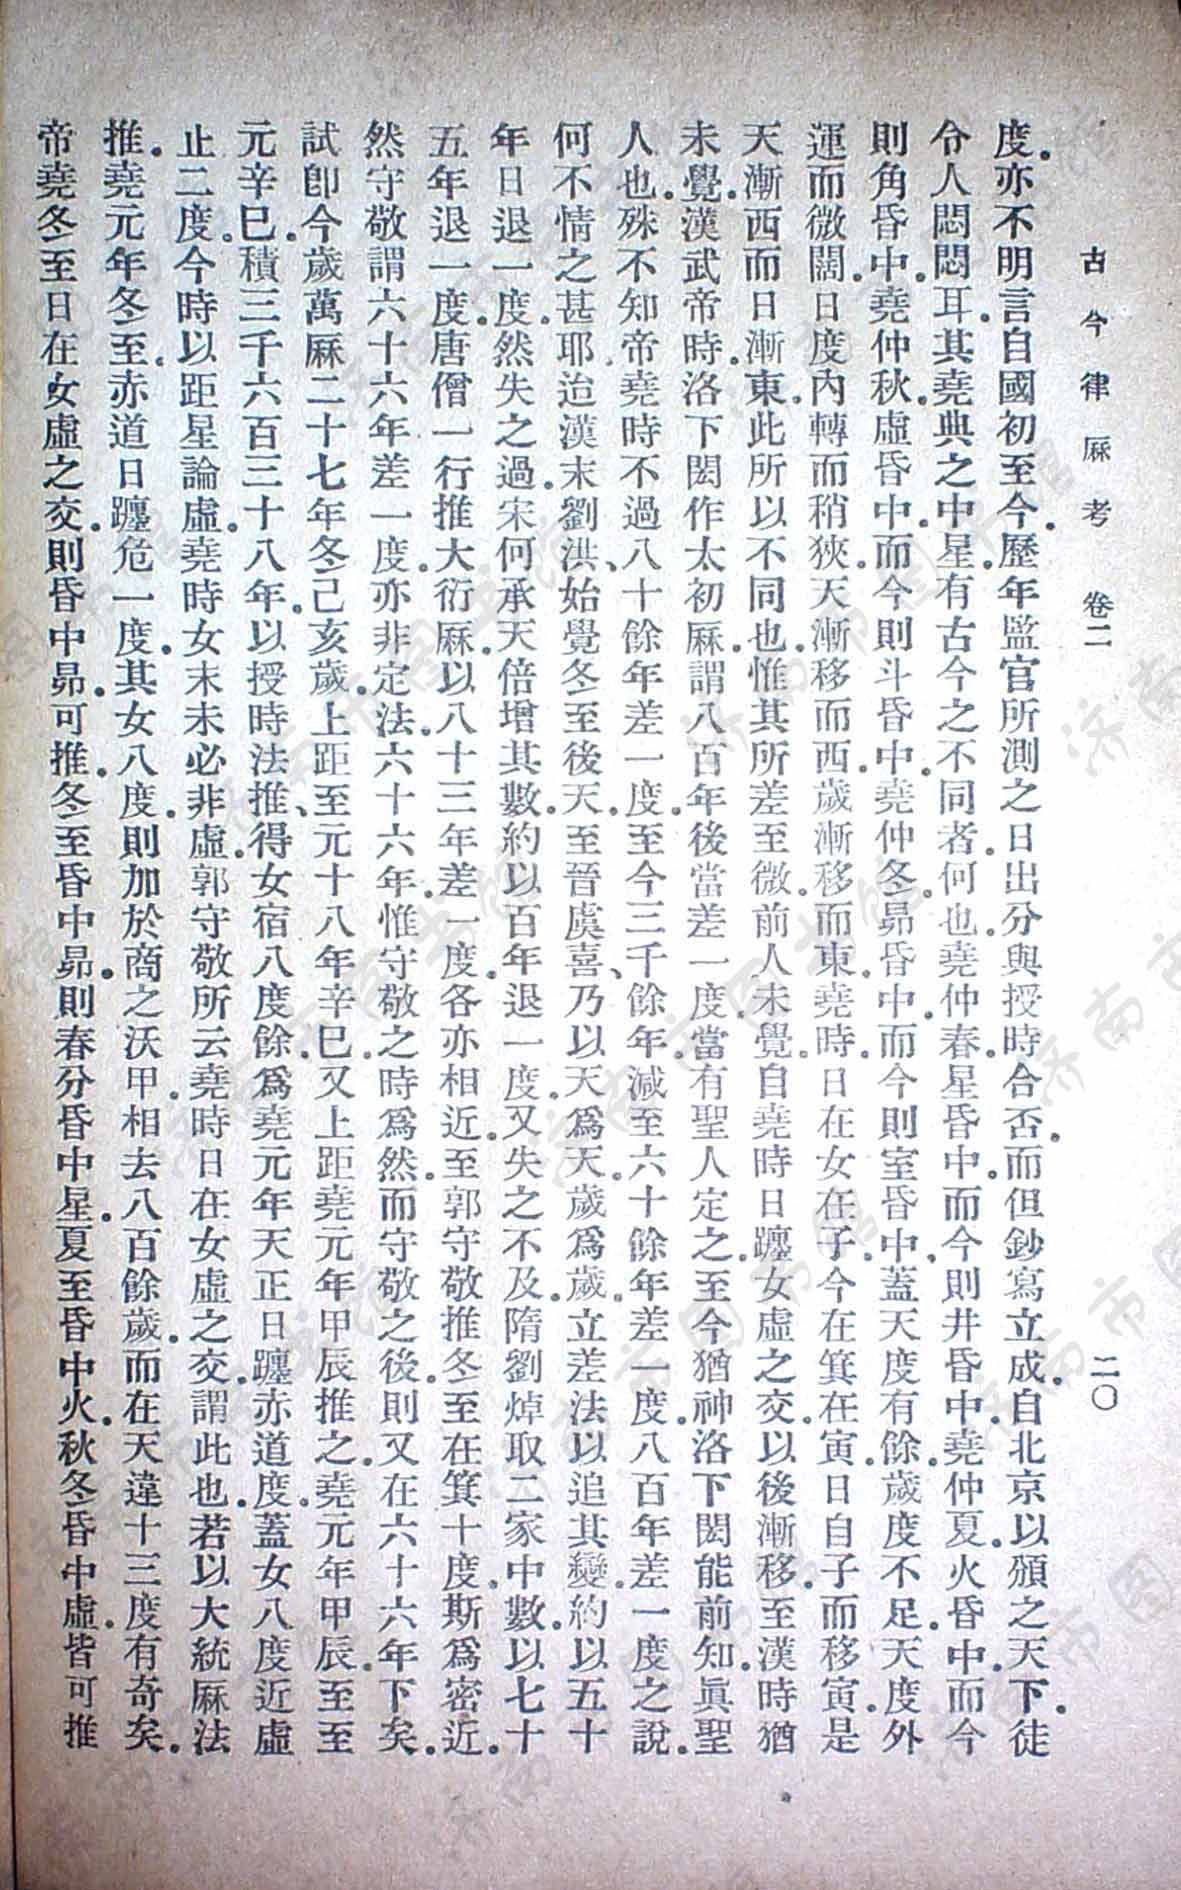 古今律厤考　卷二　二〇
度。亦不明言自國初至今。歷年監官所測之日出分與授時合否。而但鈔寫立成。自北京以頒之天下。徒
令人悶悶耳。其堯典之中星。有古今之不同者。何也。堯仲春。星昏中。而今則井昏中。堯仲夏。火昏中。而今
則角昏中。堯仲秋。虛昏中。而今則斗昏中。堯仲冬。昴昏中。而今則室昏中。蓋天度有餘。歲度不足。天度外
運而微闊。日度內轉而稍狹。天漸移而西。歲漸移而東。堯時。日在女在子。今在箕在寅。日自子而移寅。是
天漸西而日漸東。此所以不同也。惟其所差至微。前人未覺。自堯時日躔女虛之交。以後漸移。至漢時猶
未覺。漢武帝時。洛下閎作太初厤。謂八百年後當差一度。當有聖人定之。至今猶神洛下閎能前知。眞聖
人也。殊不知帝堯時不過八十餘年差一度。至今三千餘年。減至六十餘年差一度。八百年差一度之說。
何不情之甚耶。迨漢末劉洪、始覺冬至後天。至晉虞喜、乃以天爲天。歲爲歲。立差法以追其變。約以五十
年日退一度。然失之過。宋何承天倍增其數。約以百年退一度。又失之不及。隋劉焯取二家中數。以七十
五年退一度。唐僧一行推大衍厤。以八十三年差一度。各亦相近。至郭守敬推冬至在箕十度。斯爲密近。
然守敬謂六十六年差一度。亦非定法。六十六年。惟守敬之時爲然。而守敬之後。則又在六十六年下矣。
試卽今歲萬厤二十七年冬。己亥歲。上距至元十八年辛巳。又上距堯元年甲辰推之。堯元年甲辰。至至
元辛巳。積三千六百三十八年。以授時法推、得女宿八度餘。爲堯元年天正日躔赤道度。蓋女八度近虛
止二度。今時以距星論虛。堯時女末未必非虛。郭守敬所云堯時日在女虛之交。謂此也。若以大統厤法
推。堯元年冬至。赤道日躔危一度。其女八度。則加於商之沃甲。相去八百餘歲。而在天違十三度有奇矣。
帝堯冬至日在女虛之交。則昏中昴。可推。冬至昏中昴。則春分昏中星。夏至昏中火。秋冬昏中虛。皆可推